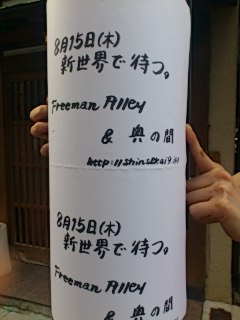 8月15日(木)
新世界で待つ。
Freeman Alley
& 奥の間
8月15日(木)
新世界で待つ。
Freeman Alley
& 奥の間